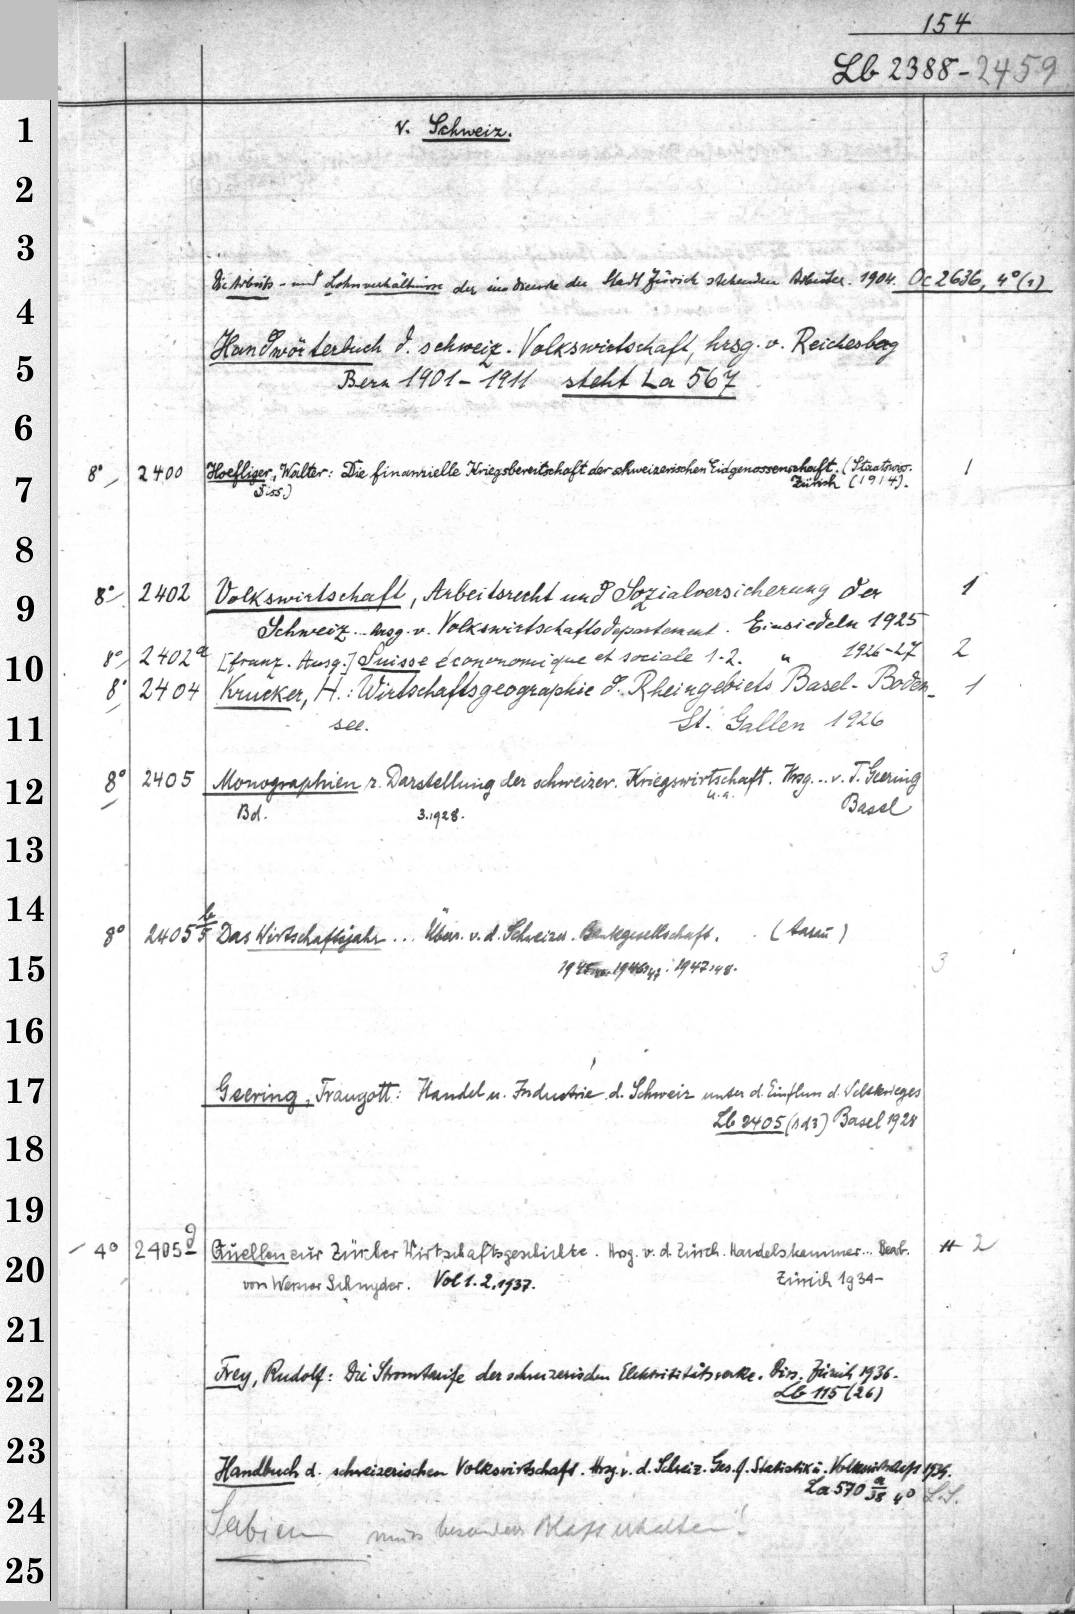 154
Lb 2388-2459
1
v. Schweiz.
2
3
Die Arbeits- und Lohnverhältnisse der im Dienste der Stadt Zürich stehenden Arbeiter. 1904. Oc 2636, 4° (1)
4
Handwörterbuch d. schweiz. Volkswirtschaft, hrsg. v. Reichesberg
5
Bern 1901-1911 steht La 567
6
8° 2400 Hoefliger, Walter: Die finanzielle Kriegsbereitschaft der schweizerischen Eidgenossenschaft. (Staatswiss. 1
7
Diss.) Zürich (1914).
8
8° 2402 Volkswirtschaft, Arbeitsrecht und Sozialversicherung der 1
9
Schweiz... hrsg. v. Volkswirtschaftsdepartement. Einsiedeln 1925
8° 2402a [franz. Ausg.] Suisse écononomique et sociale 1-2. " 1926-27 2
10
8° 2404 Krucker, H.: Wirtschaftsgeographie d. Rheingebiets Basel-Boden- 1
11
see. St. Gallen 1926
8° 2405 Monographien z. Darstellung der schweizer. Kriegswirtschaft. Hrsg... v. T. Geering
u.a.
12
Bd. 3.1928. Basel
13
14
8° 2405 b/5 Das Wirtschaftsjahr... Überr. v. d. Schweizer. Bankgesellschaft. (Aarau)
15
1946/47. 1947/48. 3
16
17
Geering, Traugott: Handel u. Industrie d. Schweiz unter d. Einfluss d. Weltkrieges
Lb 2405 (Bd 3) Basel 1928
18
19
4° 2405 g Quellen zur Zürcher Wirtschaftsgeschichte. Hrsg. v. d. Zürch. Handelskammer... Bearb. 2
20
von Werner Schnyder. Vol 1.2, 1937. Zürich 1934-
21
Frey, Rudolf: Die Stromtarife der schweizerischen Elektrizitätswerke. Diss. Zürich 1936.
22
Lb 115 (26)
23
Handbuch d. schweizerischen Volkswirtschaft. Hrsg. v. d. Schweiz. Ges. f. Statistik u. Volkswirtschaft 1939.
La 570 a/38 4° L.S.
24
muss besonders Blatt erhalten!
25